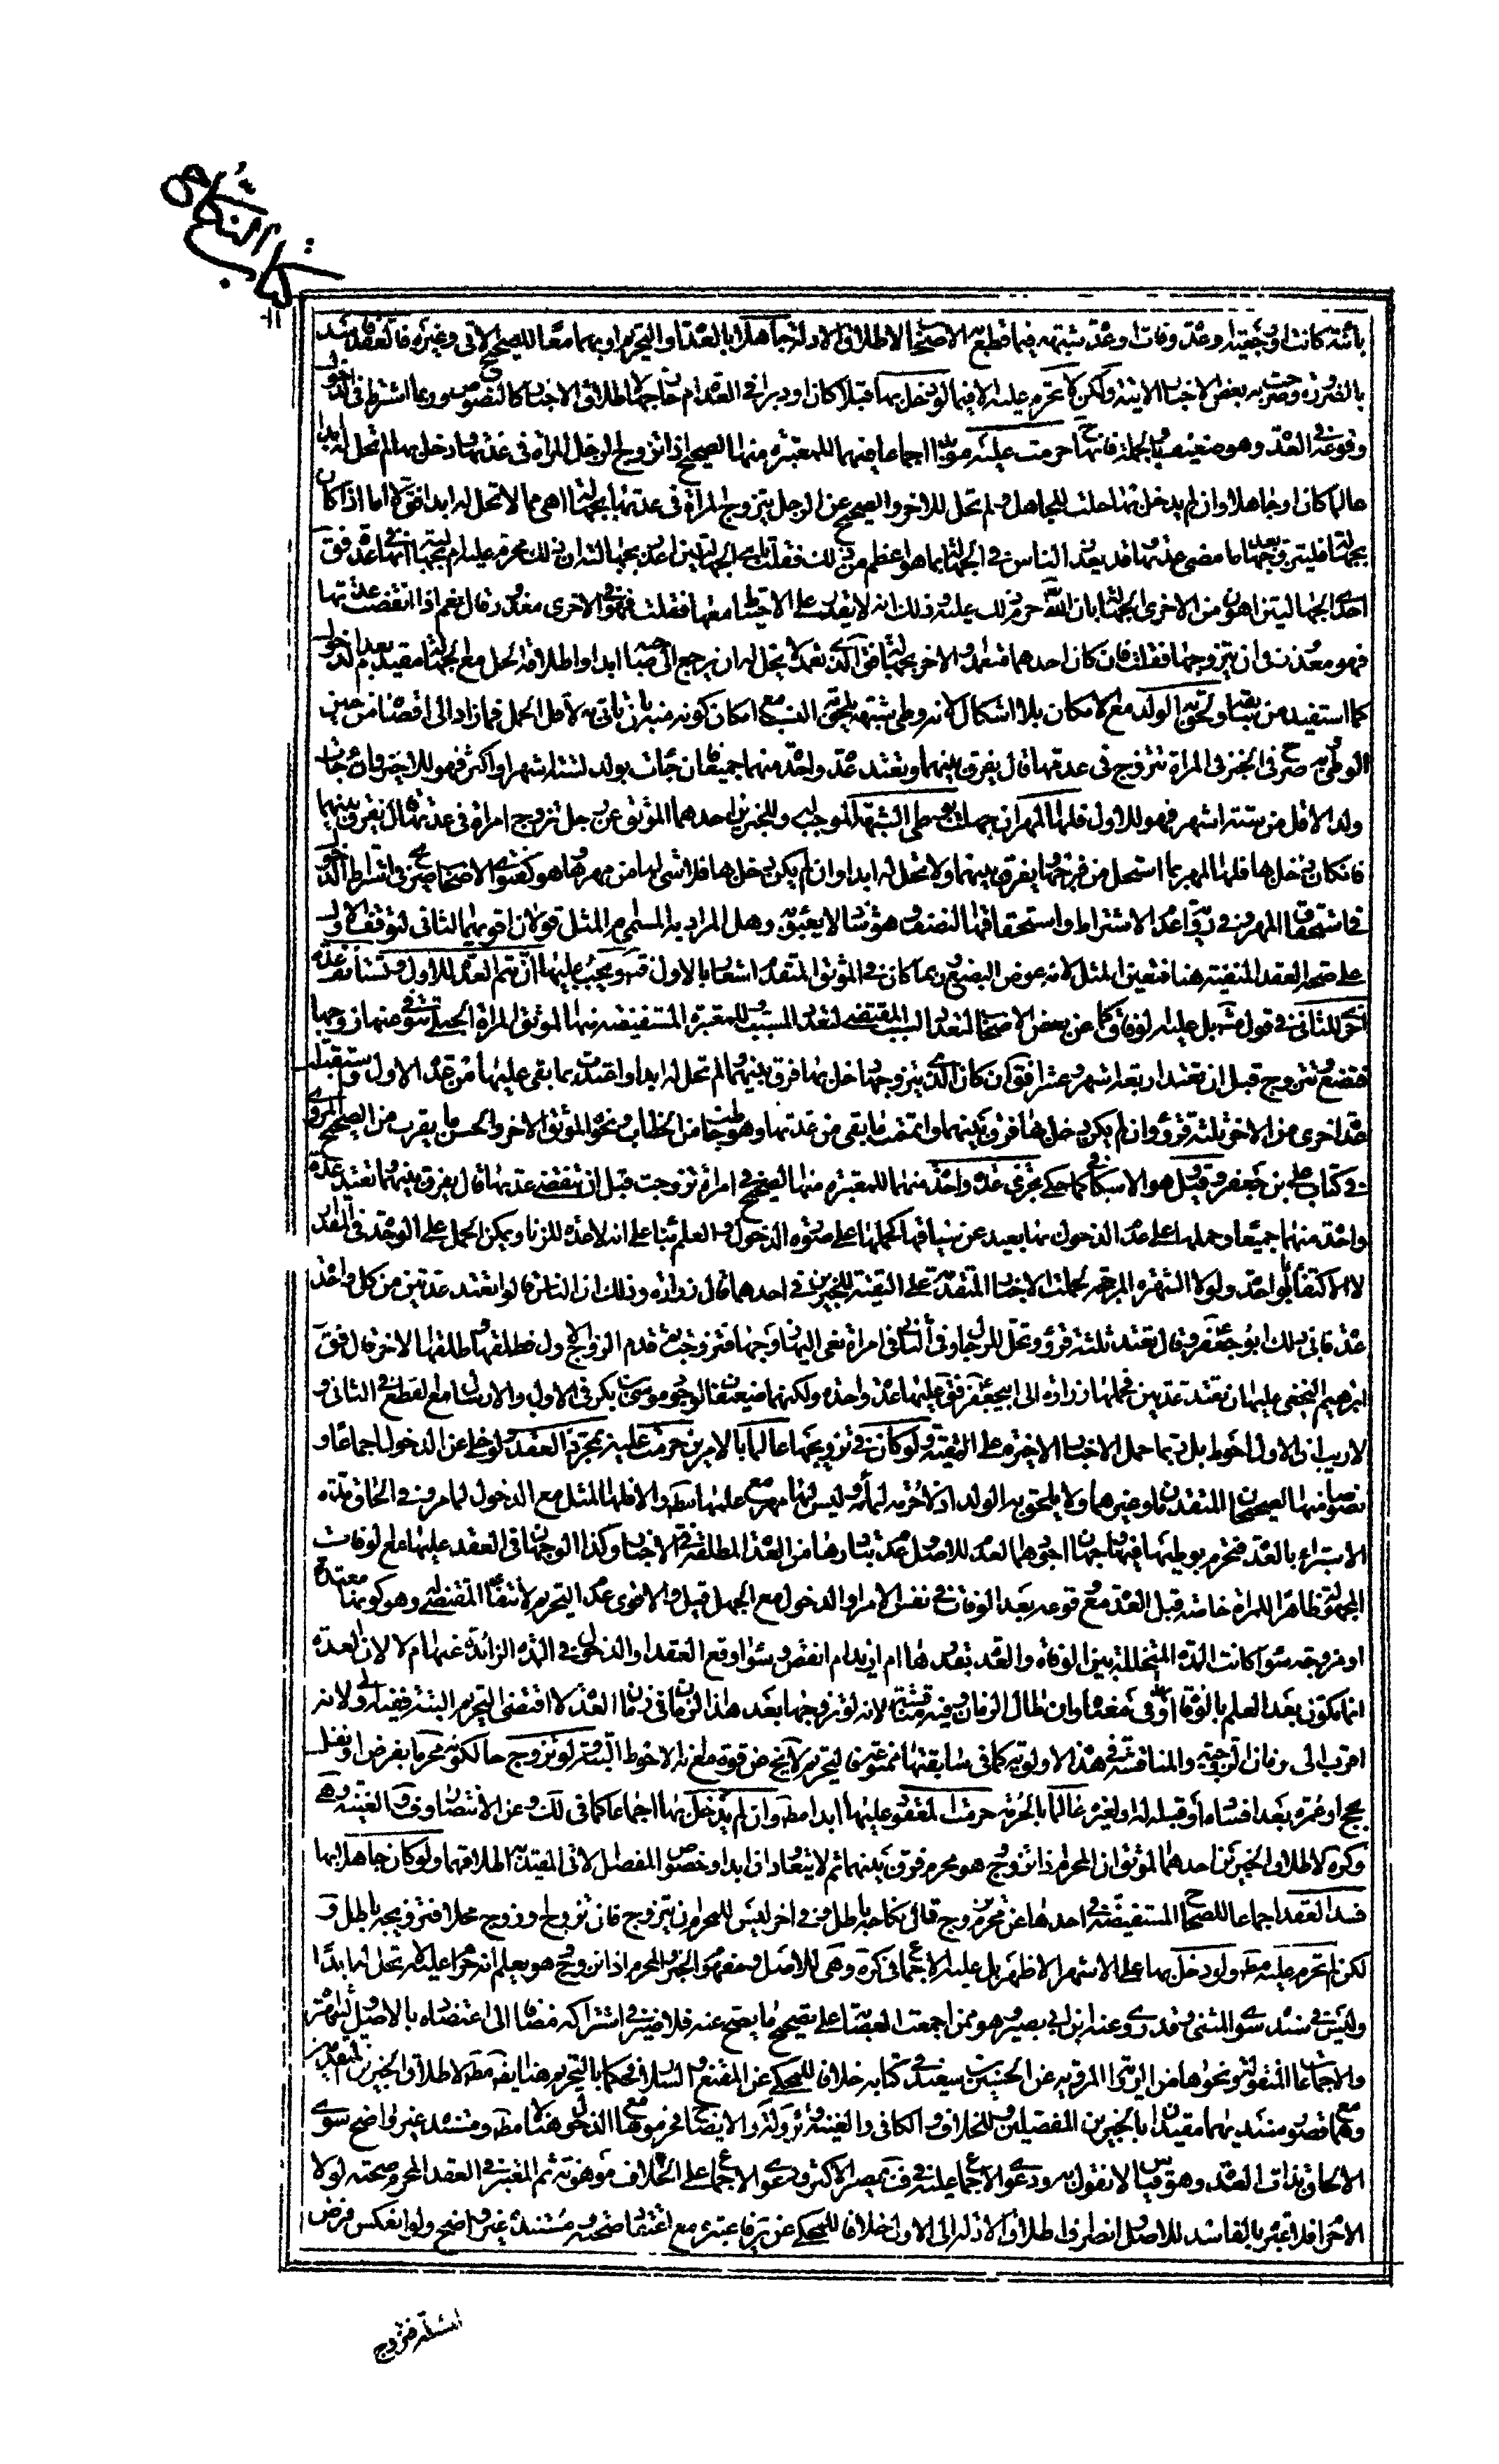 كتاب النكاح
بائنة كانت او رجعية او عدة وفات او عدة شبهة فيما قطع به الاصحاب لاطلاق الادلة جاهلا بالعدة او التحريم او بهما معا للصحيح الاتي وغيره فالعقد فاسد
بالضرورة وصرحت به بعض الاخبار الاتية ولكن لا تحرم عليه الا فيما لو دخل بها قبلا كان او دبرا في العدة ام خارجها لاطلاق الاخبار كالنصوص وربما اشترط في الدخول
وقوعه في العدة وهو ضعيف وبالجملة فانها ح حرمت عليه مؤبدا اجماعا فيهما للمعتبرة منها الصحيح اذا تزوج الرجل المراة في عدتها ودخل بها لم تحل له ابدا
عالما كان او جاهلا وان لم يدخل بها حلت للجاهل ولم تحل للاخر والصحيح عن الرجل يتزوج المراة في عدتها بجهالة اهي ممن لا تحل له ابدا فق لا اما اذا كان
بجهالة فليتزوجها بعد ما تنقضي عدتها وقد يعذر الناس في الجهالة بما هو اعظم من ذلك فقلت باي الجهالتين اعذر بجهالته ان ذلك محرم عليه ام بجهالته انها في عدة فق
احدى الجهالتين اهون من الاخرى الجهالة بان الله حرم ذلك عليه وذلك انه لا يقدر على الاحتياط معها فقلت فهو في الاخرى معذور قال نعم اذا انقضت عدتها
فهو معذور في ان يتزوجها فقلت فان كان احدهما متعمدا والاخر بجهالة فق الذي تعمد لا يحل له ان يرجع الى صاحبه ابدا واطلاقه الحل مع الجهالة مقيد بعدم الدخول
كما استفيد من سابقه ولحق به الولد مع الامكان بلا اشكال لانه وطي شبهة يلحق به النسب مع امكان كونه منه بان ياتي به لاقل الحمل فما زاد الى اقصاه من حين
الوطي به صرح في الخبر في المراة تزوج في عدتها قال يفرق بينهما وتعتد عدة واحدة منهما جميعا فان جاءت بولد لستة اشهر او اكثر فهو للاخير وان جاءت
بولد لاقل من ستة اشهر فهو للاول فلها المهر ان جهلت بوطي الشبهة الموجب له وللخبرين احدهما الموثق عن رجل تزوج امراة في عدتها قال يفرق بينهما
فان كان دخل بها فلها المهر بما استحل من فرجها ويفرق بينهما ولا تحل له ابدا وان لم يكن دخل بها فلا شيء لها من مهرها وهو كفتوى الاصحاب صريح في اشتراط الدخول
في استحقاق المهر وفي رواية عدم الاشتراط واستحقاقها النصف وهو شاذ لا يعبؤ به وهل المراد به المسمى ام المثل قولان اقويهما الثاني لتوقف الاول
على صحة العقد المنفية هنا فتعين المثل لانه عوض البضع وربما كان في الموثق المتقدم اشعار بالاول فت ويجب عليها ان تتم العدة للاول وتستانف عدة
اخرى للثاني في قول مشهور بل عليه الوفاق كما عن بعض الاصحاب لتعدد السبب المقتضي لتعدد المسبب وللمعتبرة المستفيضة منها الموثق المراة الحبلى يتوفى عنها زوجها
فتضع وتتزوج قبل ان تعتد اربعة اشهر وعشرا فق ان كان الذي تزوجها دخل بها فرق بينهما ولم تحل له ابدا واعتدت بما بقي عليها من عدة الاول واستقبلت
عدة اخرى من الاخر ثلثة قروء وان لم يكن دخل بها فرق بينهما واتمت ما بقي من عدتها وهو خاطب من الخطاب ونحوه الموثق الاخر والحسن وما يقرب من الصحيح المروي
في كتاب علي بن جعفر وقيل هو الاسكافي كما حكي تجزي عدة واحدة منهما للمعتبرة منها الصحيح في امراة تزوجت قبل ان تنقضي عدتها قال يفرق بينهما وتعتد عدة
واحدة منهما جميعا وحملها على عدم الدخول بها بعيد عن سياقها كحملها على صورة الدخول والعلم بناء على انه لا عدة للزنا ويمكن الحمل على الوحدة في القدر
لا الاكتفاء بواحدة ولولا الشهرة المرجحة لحملت الاخبار المتقدمة على التقية للخبرين في احدهما قال زرارة وذلك ان الناس قالوا تعتد عدتين من كل واحد
عدة فابى ذلك ابو جعفر وقال تعتد ثلثة قروء وتحل للرجال وفي الثاني في امراة نعي اليها زوجها فتزوجت ثم قدم الزوج الاول فطلقها وطلقها الاخر قال فق
ابرهيم النخعي عليها ان تعتد عدتين فحملها زرارة الى ابي جعفر فق عليها عدة واحدة ولكنهما ضعيفان لوجود موسى بن بكر في الاول والارسال مع القطع في الثاني و
لا ريب ان الاول احوط بل ربما حمل الاخبار الاخيرة على التقية ولو كان في تزويجها عالما بالامرين حرمت عليه بمجرد العقد ولو خلى عن الدخول اجماعا و
نصوصا منها الصحيحان المتقدمان وغيرهما ولا يلحق به الولد اذ لا حرمة لمائه وليس لها مهر مع علمها مط والا فلها المثل مع الدخول لما مر وفي الحاق مدة
الاستبراء بالعدة فتحرم بوطيها فيها وجهان اجودهما العدم للاصل وعدم تبادرها من العدة المطلقة في الاخبار وكذا الوجهان في العقد عليها مع الوفات
المجهولة ظاهرا للمراة خاصة قبل العدة مع وقوعه بعد الوفات في نفس الامر او الدخول مع الجهل قيل والاقوى عدم التحريم لانتفاء المقتضي وهو كونها معتدة
او مزوجة سواء كانت المدة المتخللة بين الوفاة والعقد بقدرها ام ازيد ام انقص وسواء وقع العقد او الدخول في المدة الزائدة عنها ام لا لان العدة
انما تكون بعد العلم بالوفاة او في معناه وان طال الزمان وفيه مناقشة لانه لو تزوجها بعد هذا الزمان في زمان العدة لاقتضى التحريم البتة ففيه اولى ولانه
اقرب الى زمان الزوجية والمناقشة في هذه الاولوية كما في سابقتها ممنوعة فالتحريم لا يخ من قوة مع انه الاحوط البتة ولو تزوج حال كونه محرما بفرض او نفل
بحج او عمرة بعد افساده او قبله له او لغيره عالما بالحرمة حرمت المعقود عليها ابدا مط وان لم يدخل بها اجماعا كما في لك وعن الانتصار وف والغنية وهي
وكره لاطلاق الخبرين احدهما الموثق ان المحرم اذا تزوج وهو محرم فرق بينهما ثم لا يتعاودان ابدا وخصوص المفصل الاتي المقيد لاطلاقهما ولو كان جاهلا بها
فسد العقد اجماعا للصحاح المستفيضة في احدها عن محرم يتزوج قال نكاحه باطل وفي اخر ليس للمحرم ان يتزوج فان تزوج او زوج محلا فتزويجه باطل و
لكن لم تحرم عليه مط ولو دخل بها على الاشهر الاظهر بل عليه الاجماع في كره وهي للاصل ومفهوم الخبر المحرم اذا تزوج وهو يعلم انه حرام عليه لم تحل له ابدا
وليس في سنده سوى المثنى وقد روى عنه ابن ابي نصر وهو ممن اجمعت العصابة على تصحيح ما يصح عنه فلا ضير في اشتراكه مضافا الى اعتضاده بالاصل والشهرة
والاجماعات المنقولة ونحوها من الروايات المروية عن الحسين بن سعيد في كتابه خلافا للمحكي عن المقنع والسلار فحكما بالتحريم هنا ايضا مط لاطلاق الخبرين المتقدمين
وهما مع قصور سنديهما مقيدان بالخبرين المفصلين وللخلاف والكافي والغنية والوسيلة والايضاح فحرموها مع الدخول هنا لا مط ومستنده غير واضح سوى
الالحاق بذات العدة وهو قياس لا نقول به ودعوى الاجماع عليه في ف بمصير الاكثر ودعوى الاجماع على الخلاف موهونة ثم المعتبر في العقد المحرم صحته لولا
الاحرام فلا عبرة بالفاسد للاصل وانصراف اطلاق الادلة الى الاول خلافا للمحكي عن ير فاعتبره مع اعتقاد صحته ومستنده غير واضح ولو انعكس فرض
المسئلة فتزوج